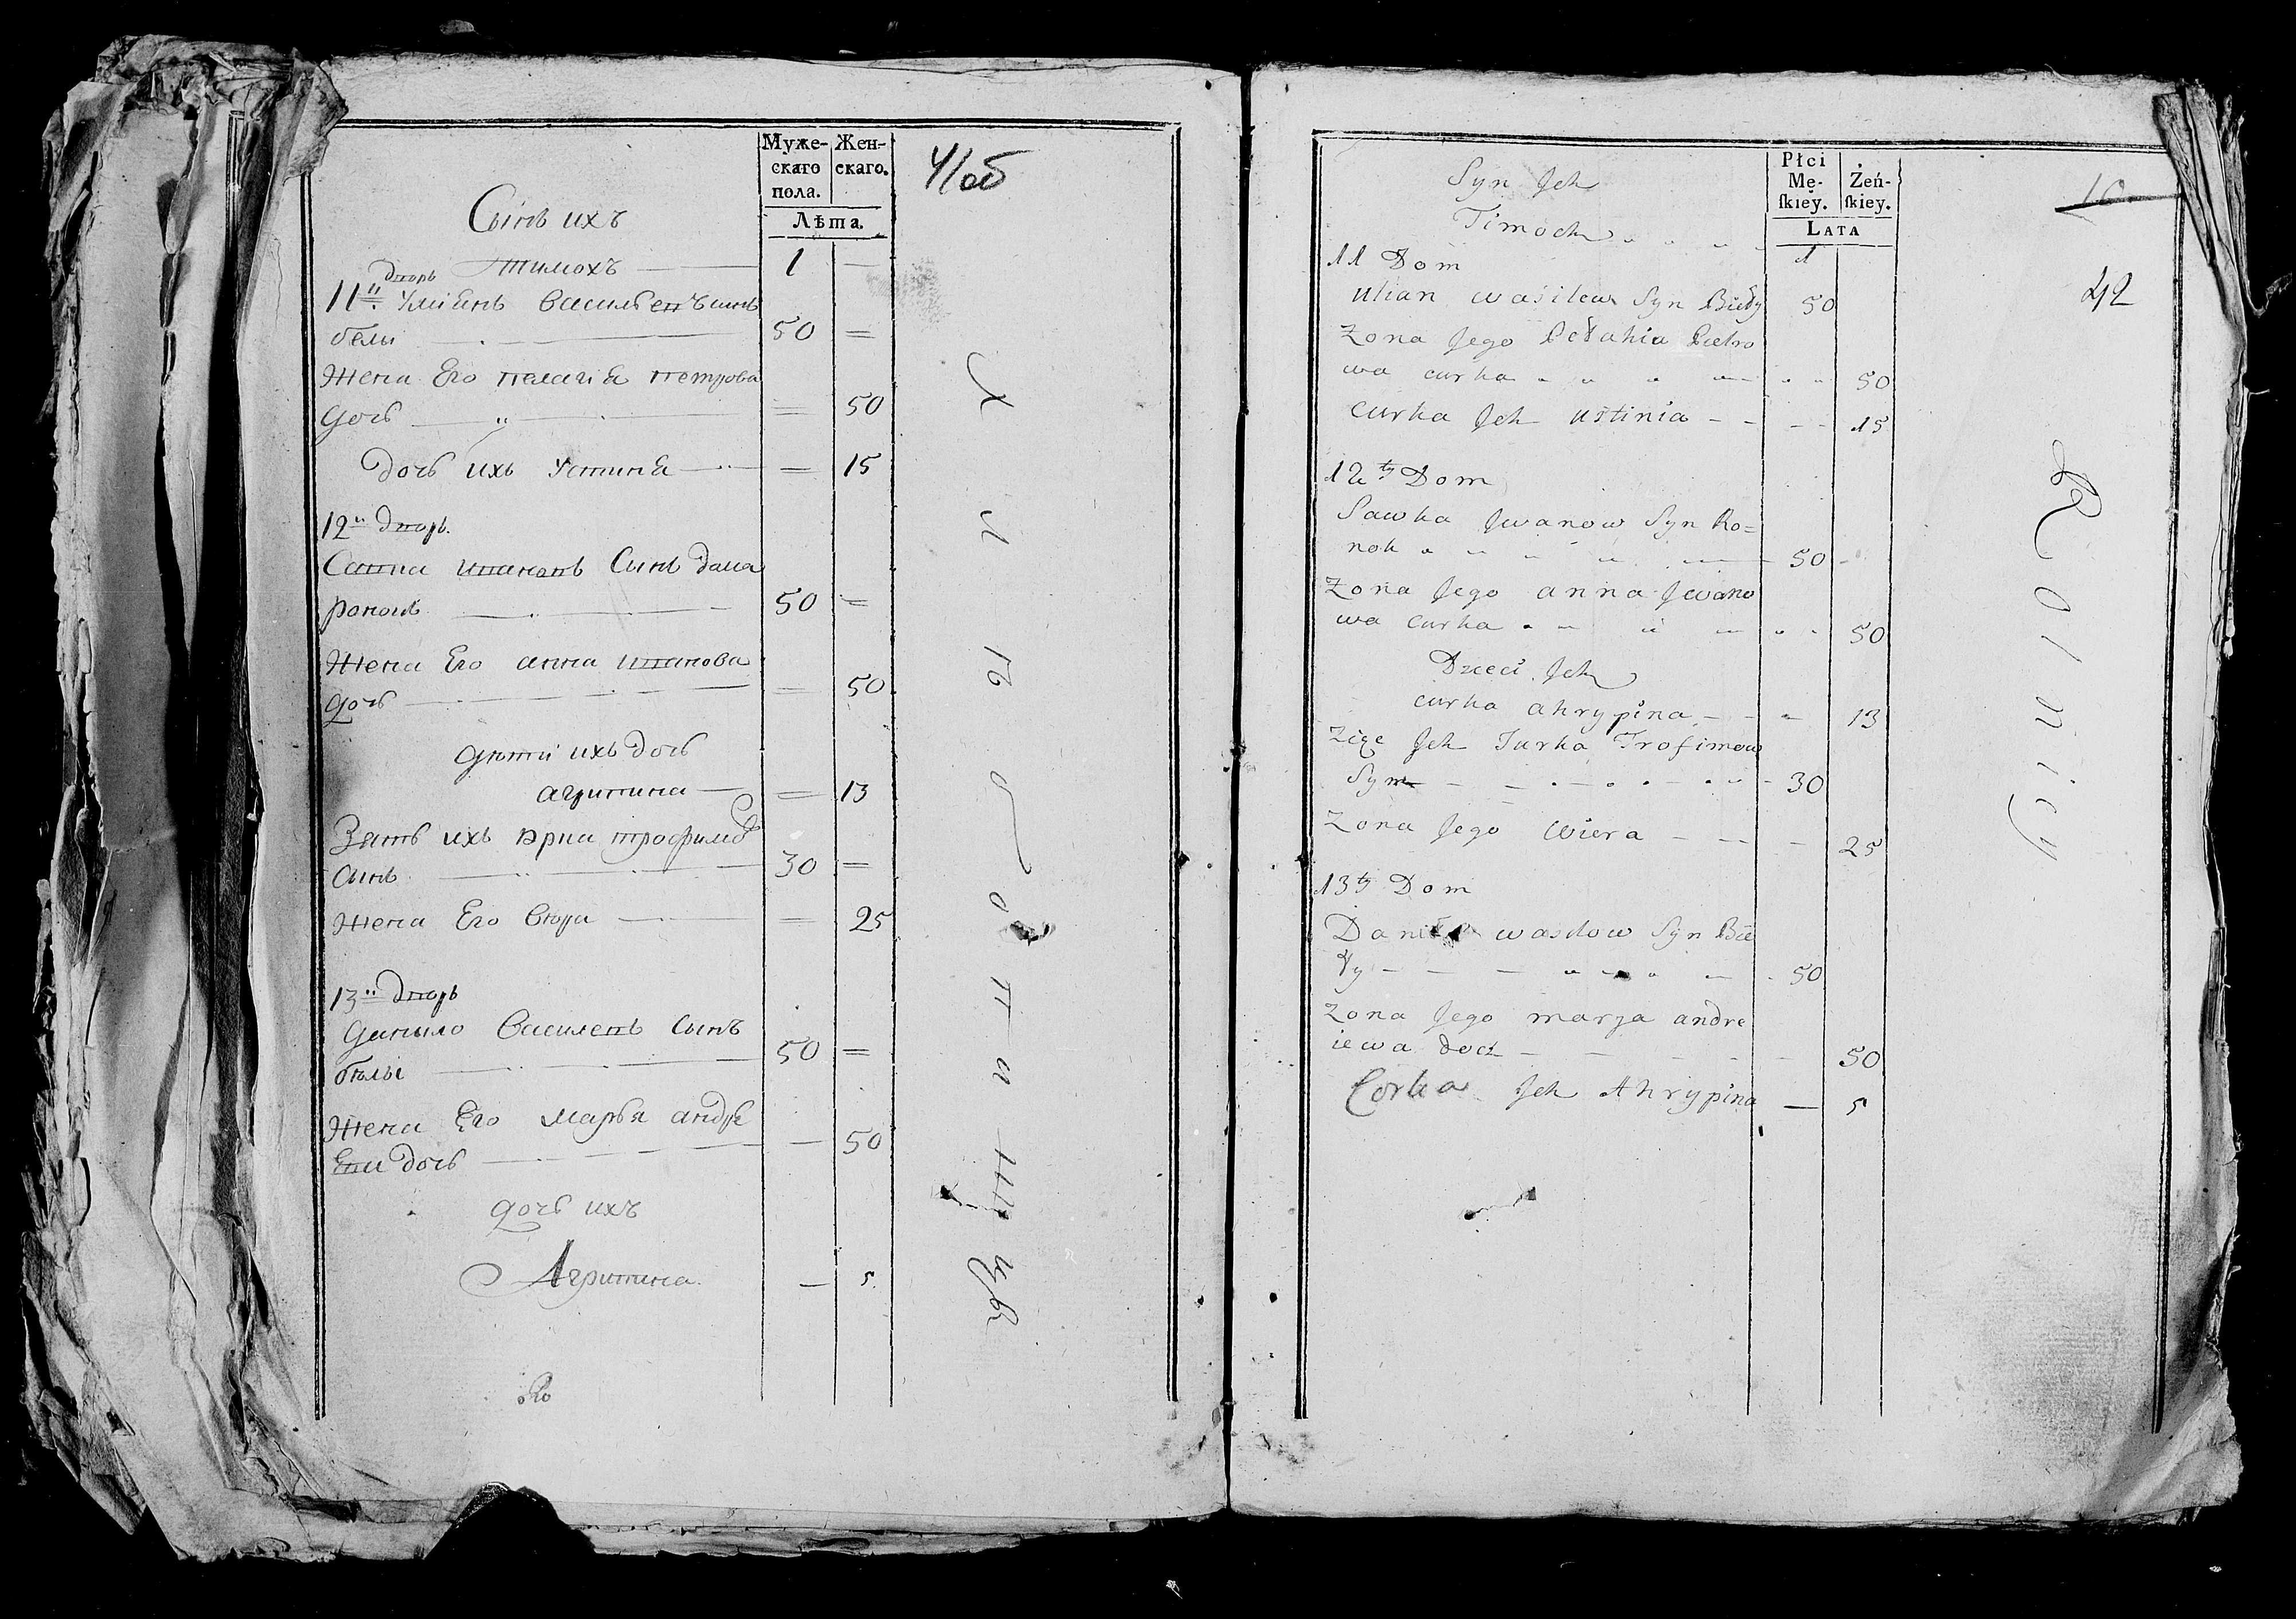 Муже-
скаго
пола.
Жен-
скаго.
Лѣта.
41об
Сынъ ихъ
Тимохъ — 1 —
11й дворъ
Улиянъ Васильевъ сынъ
белы — 50 =
Жена Его пелагiя петрова
дочь — = 50
дочь ихъ Устиня — = 15
12й дворъ.
Савка ивановъ Сынъ
ронокъ — 50 =
Жена Его анна иванова
дочь — = 50
дѣти ихъ дочь
агрипина — = 13
Зять ихъ юрка трофимовъ
сынъ — 30 =
Жена Его Вѣра — = 25
13й дворъ
даныло Василевъ сынъ
бѣлы — 50 =
Жена Его марья андре
Ева дочь — — 50
дочь ихъ
Агрипина. — 5.
Хлѣбопашцы
Płci
Mę-
ſkiey.
Żeń-
ſkiey.
LATA
42
Syn Jch
Timoch 1
11 Dom
ulian wasilew Syn Bieły 50
Zona Jego Pełahia Pietro
wa curka 50
curka Jch ustinia - - - - 15
12ty Dom
Sawka Jwanow Syn Ro=
nok 50 -
Zona Jego anna Jwano
wa curka 50
Dzieci Jch
curka ahrypina - - - 13
Zięc Jch Jurka Trofimow
Syn - - - 30
Zona Jego wiera - - - 25
13ty Dom
Daniło wasilow Syn Bie
ły - - - 50
Zona Jego marya andre
iewa docz - - - 50
Corka Jch Ahrypina — 5
Rolnicy